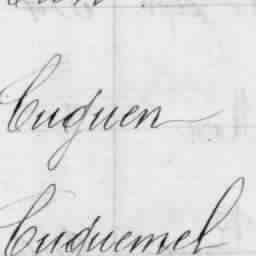 Cuguen
Cuguemel